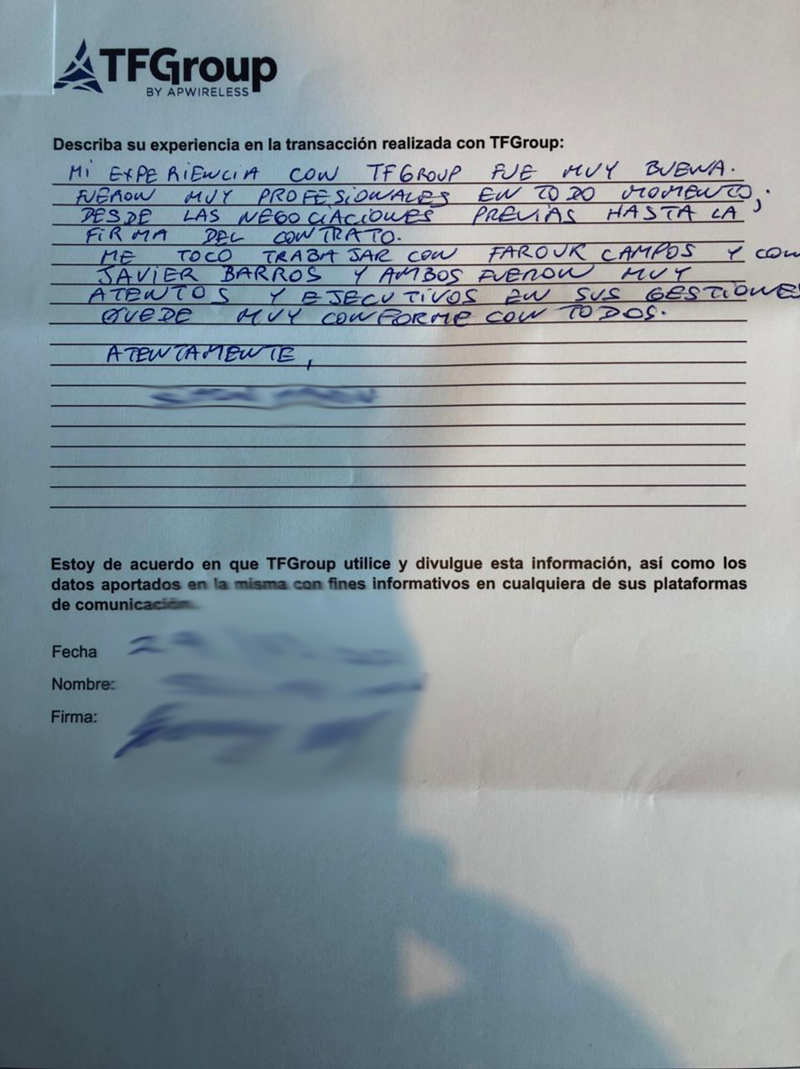 TFGroup
BY APWIRELESS
Describa su experiencia en la transacción realizada con TFGroup:
MI EXPERIENCIA CON TFGROUP FUE MUY BUENA.
FUERON MUY PROFESIONALES EN TODO MOMENTO,
DESDE LAS NEGOCIACIONES PREVIAS HASTA LA
FIRMA DEL CONTRATO.
ME TOCO TRABAJAR CON FAROUK CAMPOS Y CON
JAVIER BARROS Y AMBOS FUERON MUY
ATENTOS Y EJECUTIVOS EN SUS GESTIONES
QUEDE MUY CONFORME CON TODOS.
ATENTAMENTE,
Estoy de acuerdo en que TFGroup utilice y divulgue esta información, así como los
datos aportados en la misma con fines informativos en cualquiera de sus plataformas
de comunicación.
Fecha
Nombre:
Firma: